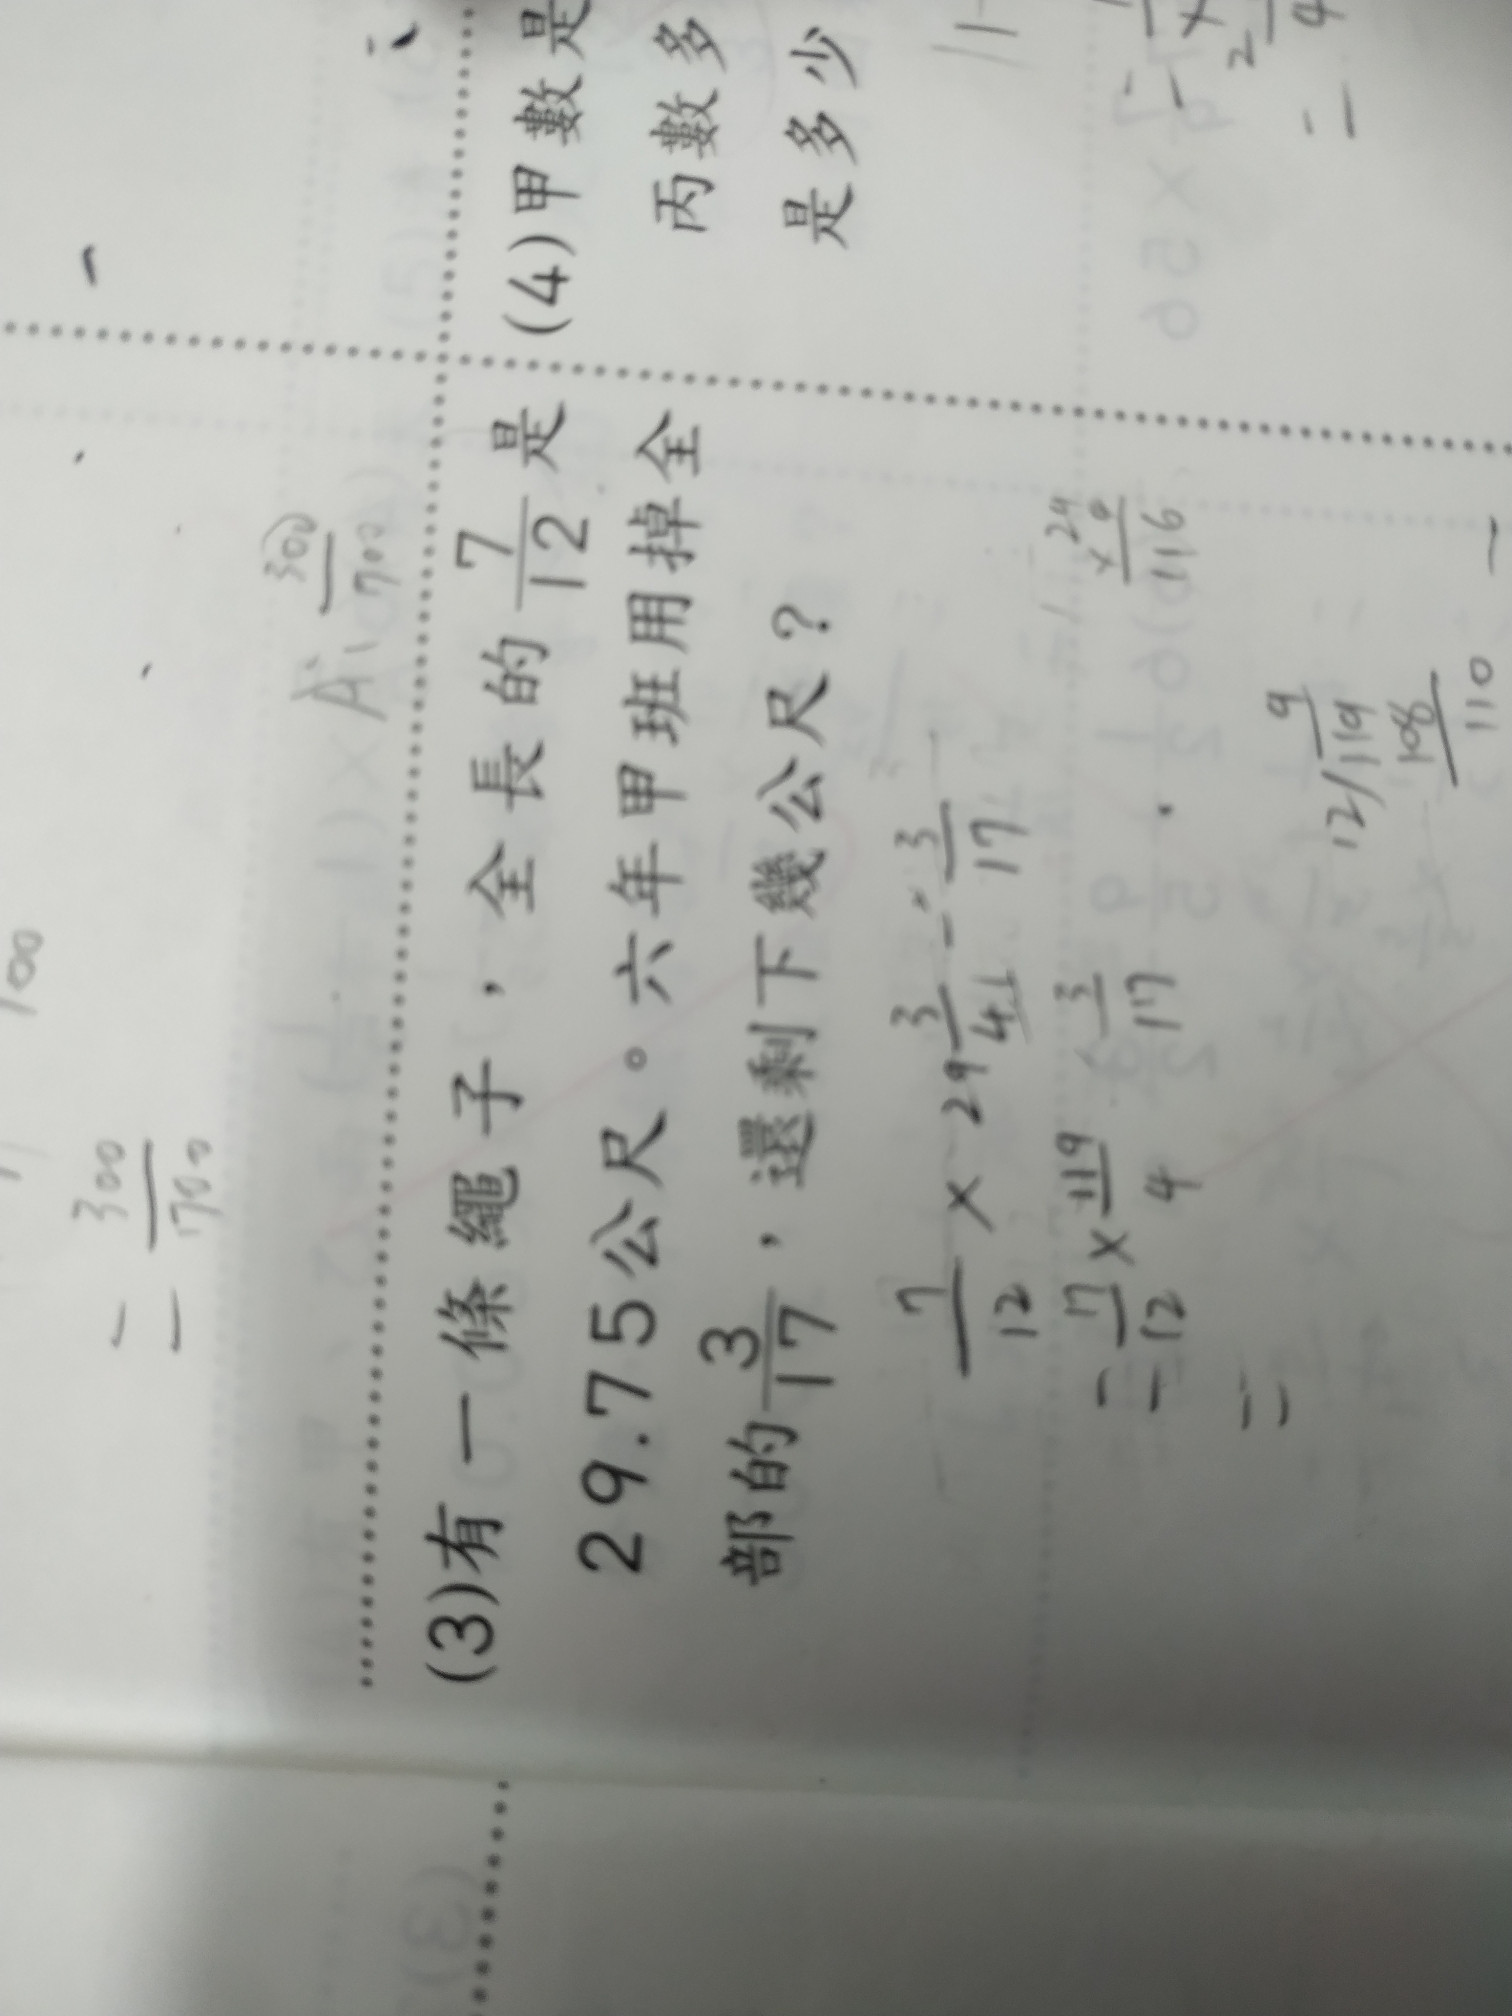 100
= 300/700
A: 300/700
(3)有一條繩子，全長的 7/12 是
29.75公尺。六年甲班用掉全
部的 3/17，還剩下幾公尺？
7/12 × 29 3/4 - 3/17
= 7/12 × 119/4 3/17
=
29
116
9
12/119
108
110
(4)甲數是
丙數多
是多少